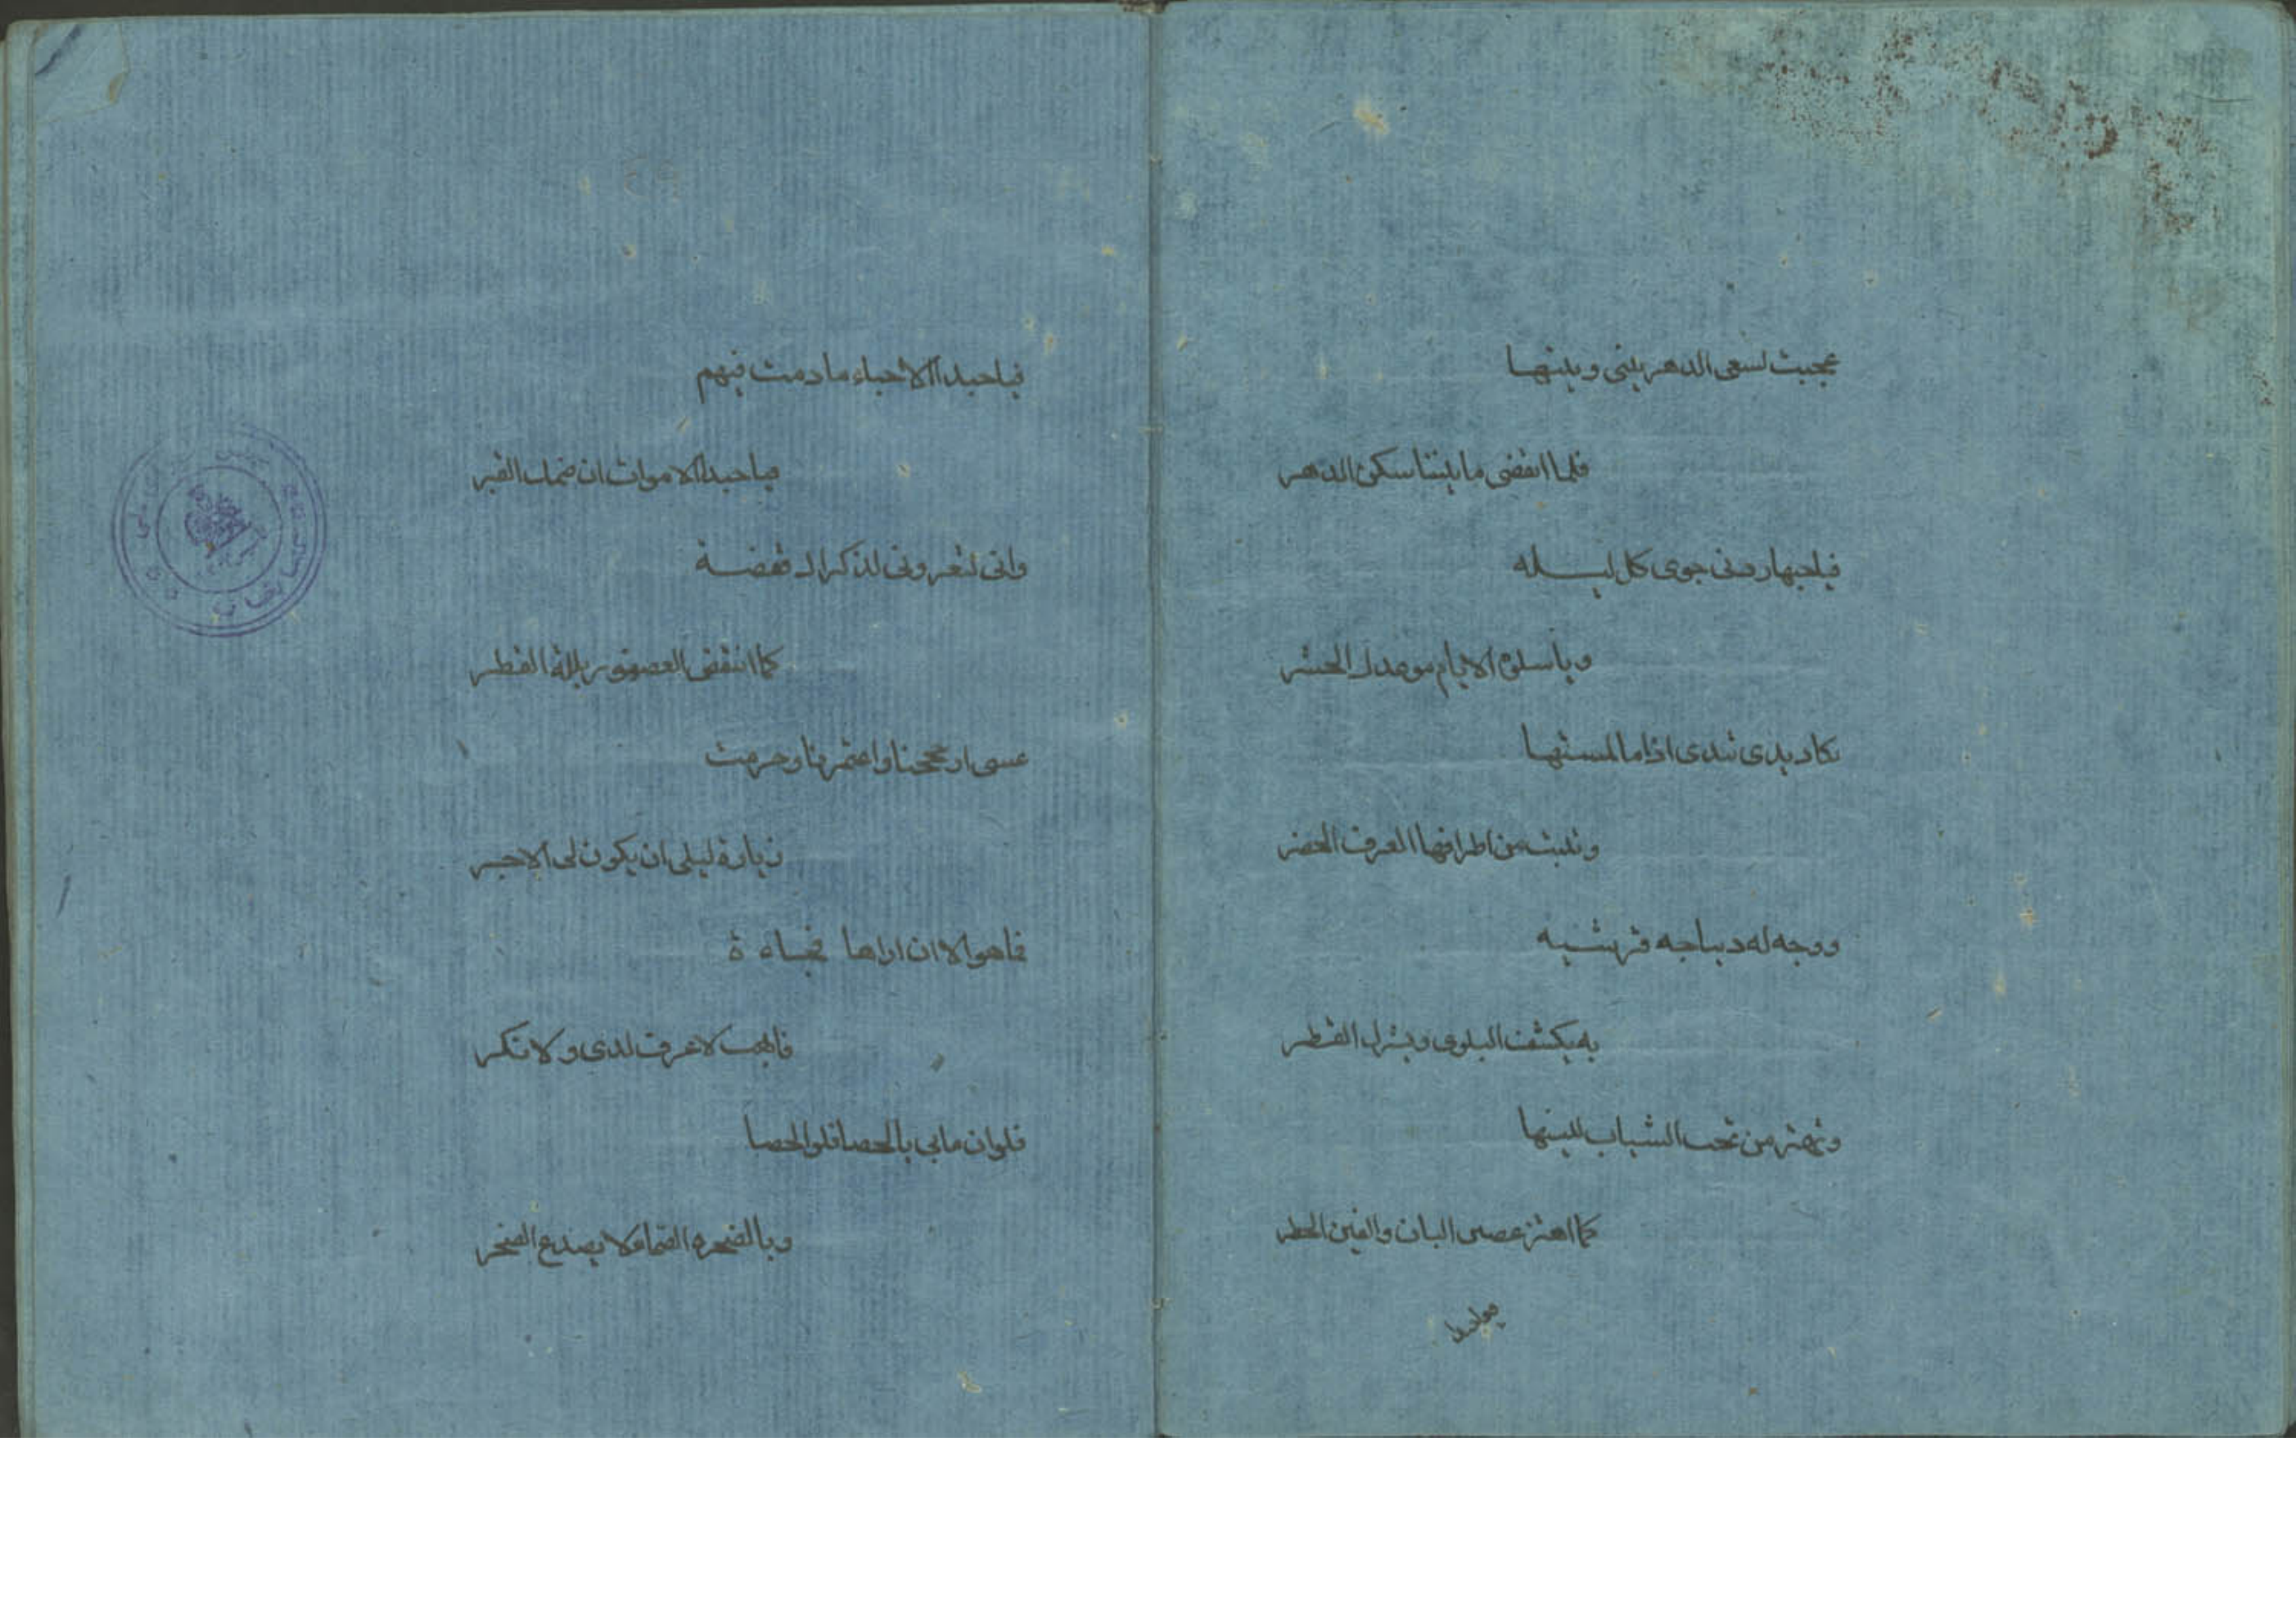 عجبت لسعى الدهر بينى وبينها
فلما انقضى ما بيننا سكن الدهر
فياحبها زدنى جوى كل ليله
وياسلوة الايام موعدك الحشر
تكاد يدى تندى اذا ما لمستها
وتنبت من اطرافها الخضر
ووجه له ديباجه قرشيه
به يكشف البلوى وينزل القطر
وتهتز من تحت الشباب للينها
كما اهتز غصن البان والفنن
فياحبذا الاحياء ما دمت فيهم
وياحبذا الاموات ان ضمك القبر
وانى لتعرونى لذكراك نفضة
كما انتفض العصفور بلله القطر
عسى ان حججنا واعتمرنا وحرمت
زيارة ليلى ان يكون لى الاجر
فما هو الا ان اراها فجاءة
فابهت لا عرف لدى ولا نكر
فلو ان ما بى بالحصا فلق الحصا
وبالصخره الصما لا يصدع الصخر